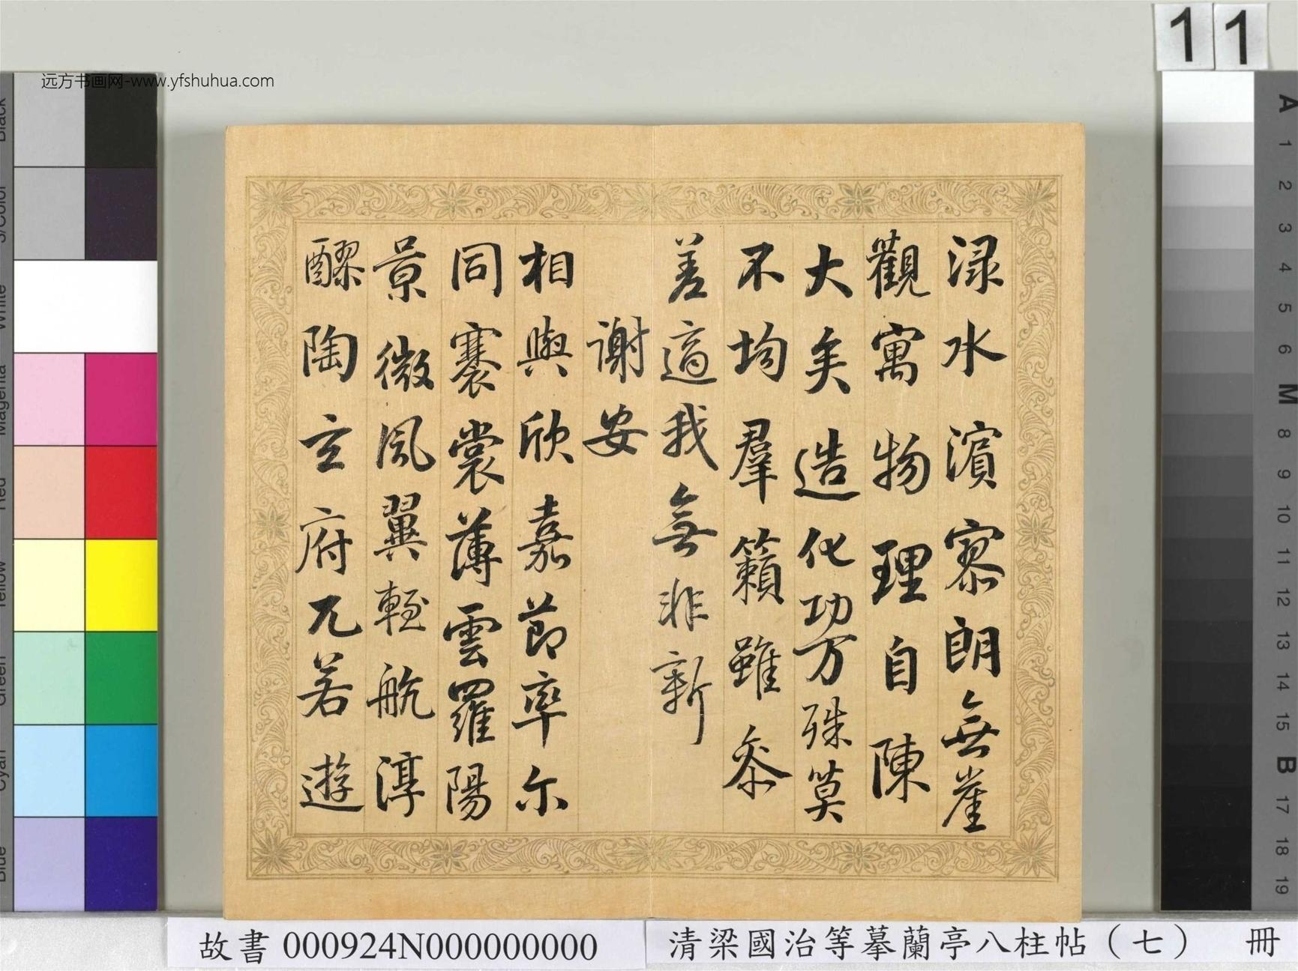 远方书画网-www.yfshuhua.com
11
渌水濵寥朗無崖
觀寓物理自陳
大矣造化功万殊莫
不均羣籟雖叅
差適我無非新
謝安
相與欣嘉節率尓
同褰裳薄雲羅陽
景微風翼輕航淳
醪陶玄府兀若遊
Black
3/Color
White
Magenta
Red
Yellow
Green
Cyan
Blue
A
1
2
3
4
5
6
M
8
9
10
11
12
13
14
15
B
17
18
19
故書 000924N000000000
清梁國治等摹蘭亭八柱帖（七） 冊